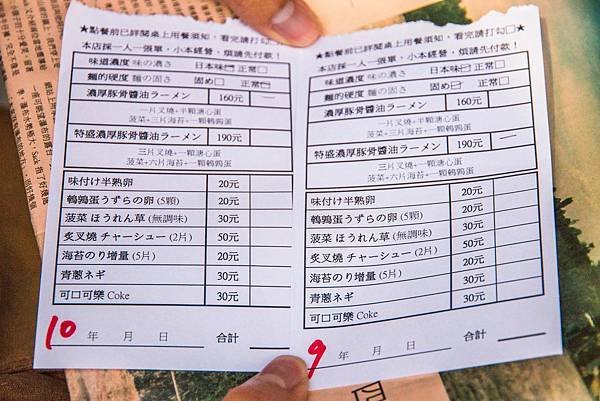 ★點餐前已詳閱桌上用餐須知、看完請打勾□★
本店採一人一張單，小本經營，煩請先付款！
味道濃度 味の濃さ 日本味 正常□
麵的硬度 麺の固さ 固め□ 正常□
濃厚豚骨醬油ラーメン 160元
一片叉燒+半顆溏心蛋
菠菜+三片海苔+一顆鵪鶉蛋
特盛濃厚豚骨醬油ラーメン 190元
三片叉燒+一顆溏心蛋
菠菜+六片海苔+一顆鵪鶉蛋
味付け半熟卵 20元
鵪鶉蛋うずらの卵 (5顆) 20元
菠菜 ほうれん草 (無調味) 30元
炙叉燒 チャーシュー (2片) 50元
海苔のり增量 (5片) 20元
青蔥ネギ 30元
可口可樂 Coke 30元
10 年 月 日 合計
★點餐前已詳閱桌上用餐須知、看完請打勾□★
本店採一人一張單，小本經營，煩請先付款！
味道濃度 味の濃さ 日本味 正常□
麵的硬度 麺の固さ 固め□ 正常□
濃厚豚骨醬油ラーメン 160元
一片叉燒+半顆溏心蛋
菠菜+三片海苔+一顆鵪鶉蛋
特盛濃厚豚骨醬油ラーメン 190元
三片叉燒+一顆溏心蛋
菠菜+六片海苔+一顆鵪鶉蛋
味付け半熟卵 20元
鵪鶉蛋うずらの卵 (5顆) 20元
菠菜 ほうれん草 (無調味) 30元
炙叉燒 チャーシュー (2片) 50元
海苔のり增量 (5片) 20元
青蔥ネギ 30元
可口可樂 Coke 30元
9 年 月 日 合計